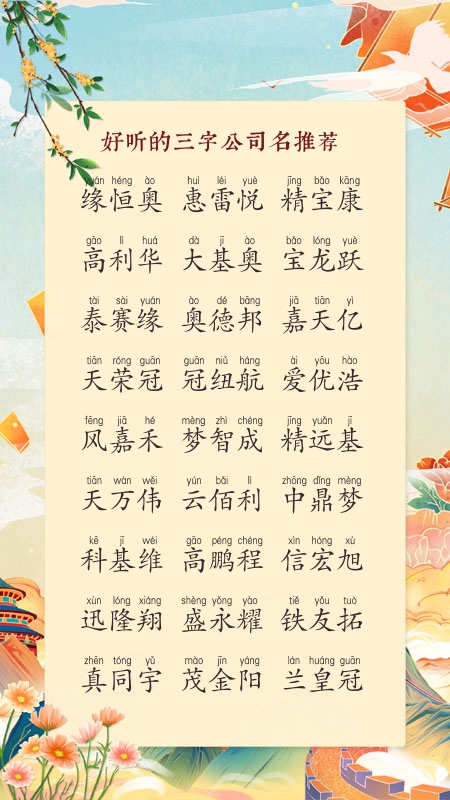 好听的三字公司名推荐
yuán héng ào huì léi yuè jīng bǎo kāng
缘恒奥 惠雷悦 精宝康
gāo lì huá dà jī ào bǎo lóng yuè
高利华 大基奥 宝龙跃
tài sài yuán ào dé bāng jiā tiān yì
泰赛缘 奥德邦 嘉天亿
tiān róng guān guān niǔ háng ài yōu hào
天荣冠 冠纽航 爱优浩
fēng jiā hé mèng zhì chéng jīng yuǎn jī
风嘉禾 梦智成 精远基
tiān wàn wěi yún bǎi lì zhōng dǐng mèng
天万伟 云佰利 中鼎梦
kē jī wéi gāo péng chéng xìn hóng xù
科基维 高鹏程 信宏旭
xùn lóng xiáng shèng yǒng yào tiě yǒu tuò
迅隆翔 盛永耀 铁友拓
zhēn tóng yǔ mào jīn yáng lán huáng guān
真同宇 茂金阳 兰皇冠